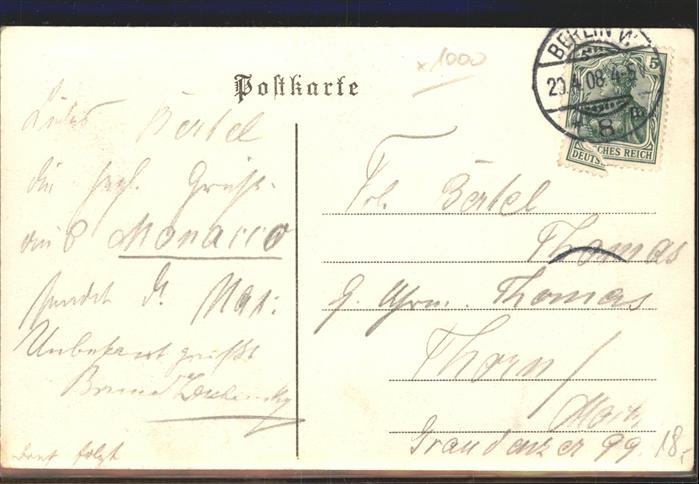 x 1000
Postkarte
BERLIN W.
20.4.08.4-5N
* 8
5
DEUTSCHES REICH
Liebes Bertel
die Grüße
aus Monacco
sendet Dr. Max.
Unbekannt grüßt
Bruno
Brief folgt
Frl. Bertel
Thomas
Thomas
Thorn/
Mock.
Graudenzer 99.
18,-